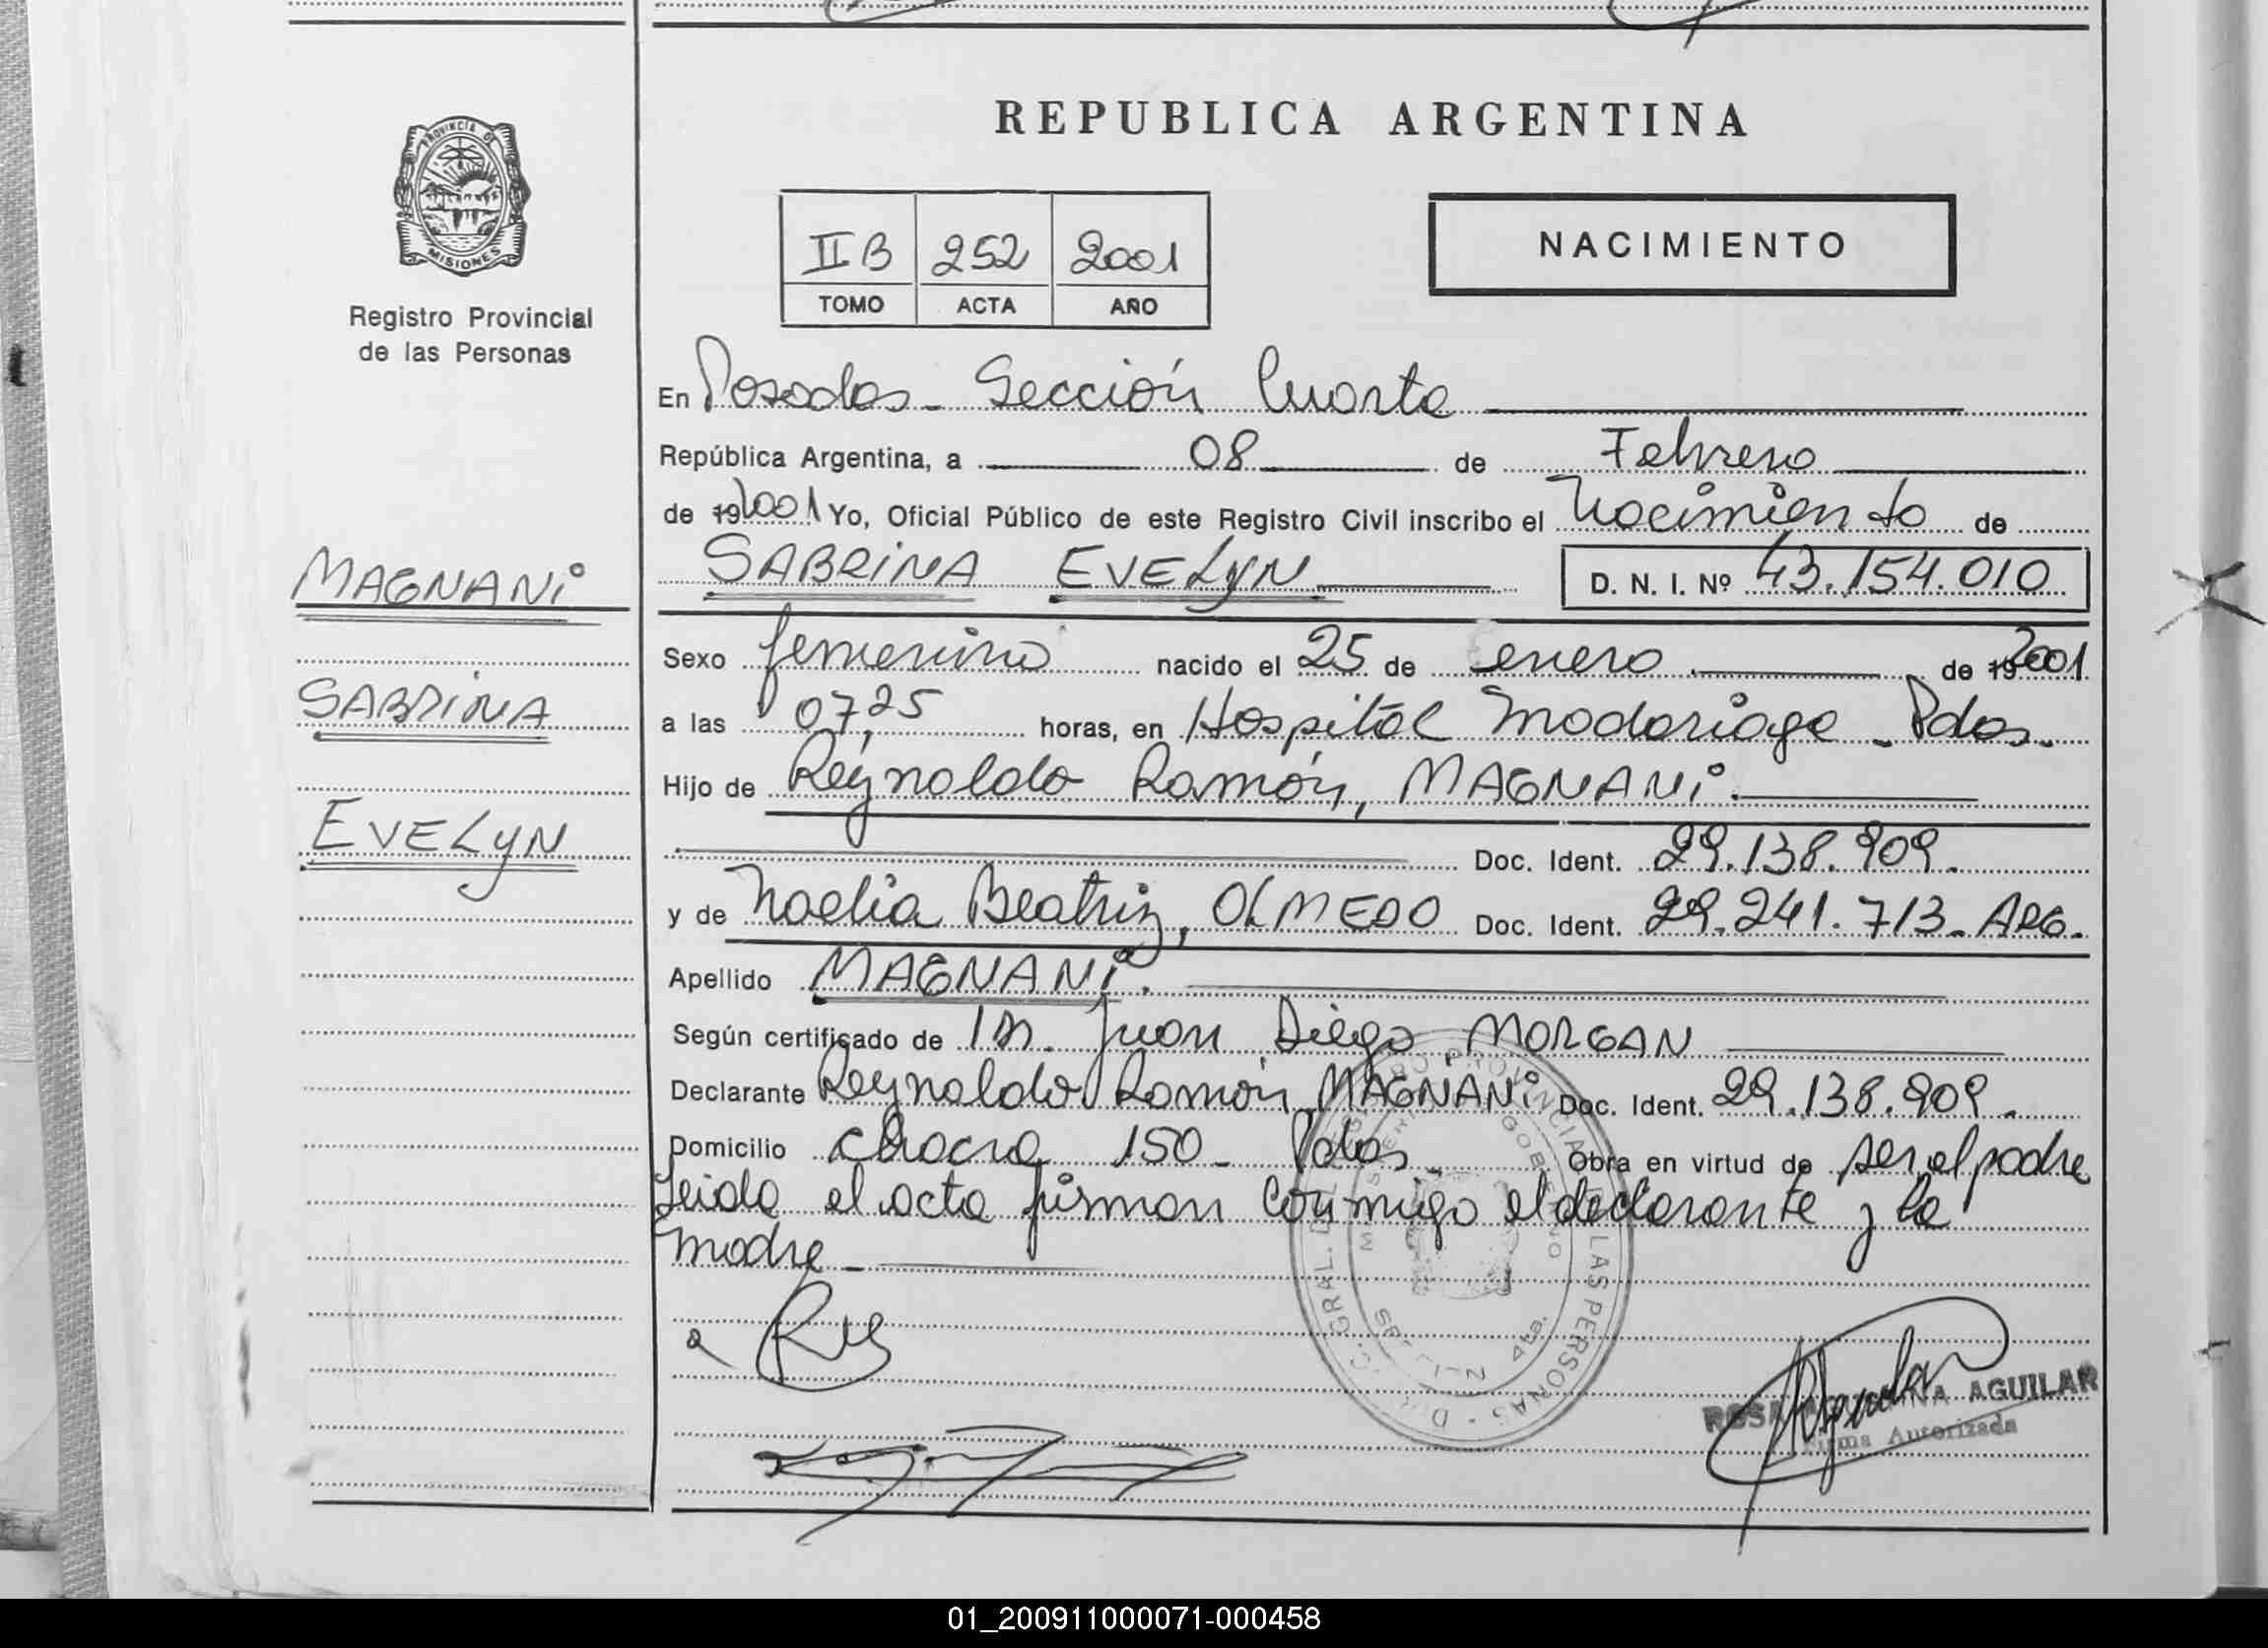 REPUBLICA ARGENTINA
PROVINCIA DE
MISIONES
Registro Provincial
de las Personas
II B 252 2001
TOMO ACTA AÑO
NACIMIENTO
En Posadas - Sección Cuarta
República Argentina, a 08 de Febrero
de 19 2001 Yo, Oficial Público de este Registro Civil inscribo el Nacimiento de
SABRINA EVELYN D. N. I. Nº 43.154.010
MAGNANI
SABRINA
EVELYN
Sexo femenino nacido el 25 de enero de 19 2001
a las 07,25 horas, en Hospital Madariaga - Pdas.
Hijo de Reynaldo Ramón, MAGNANI.
Doc. Ident. 29.138.909.
y de Noelia Beatriz, OLMEDO Doc. Ident. 29.241.713. ARG.
Apellido MAGNANI.
Según certificado de Dr. Juan Diego, MORGAN
Declarante Reynaldo Ramón, MAGNANI Doc. Ident. 29.138.909.
Domicilio chacra 150 - Pdas. Obra en virtud de ser el padre
Leida el acta firman conmigo el declarante y la
madre
ROSA AGUILAR
Firma Autorizada
01_200911000071-000458